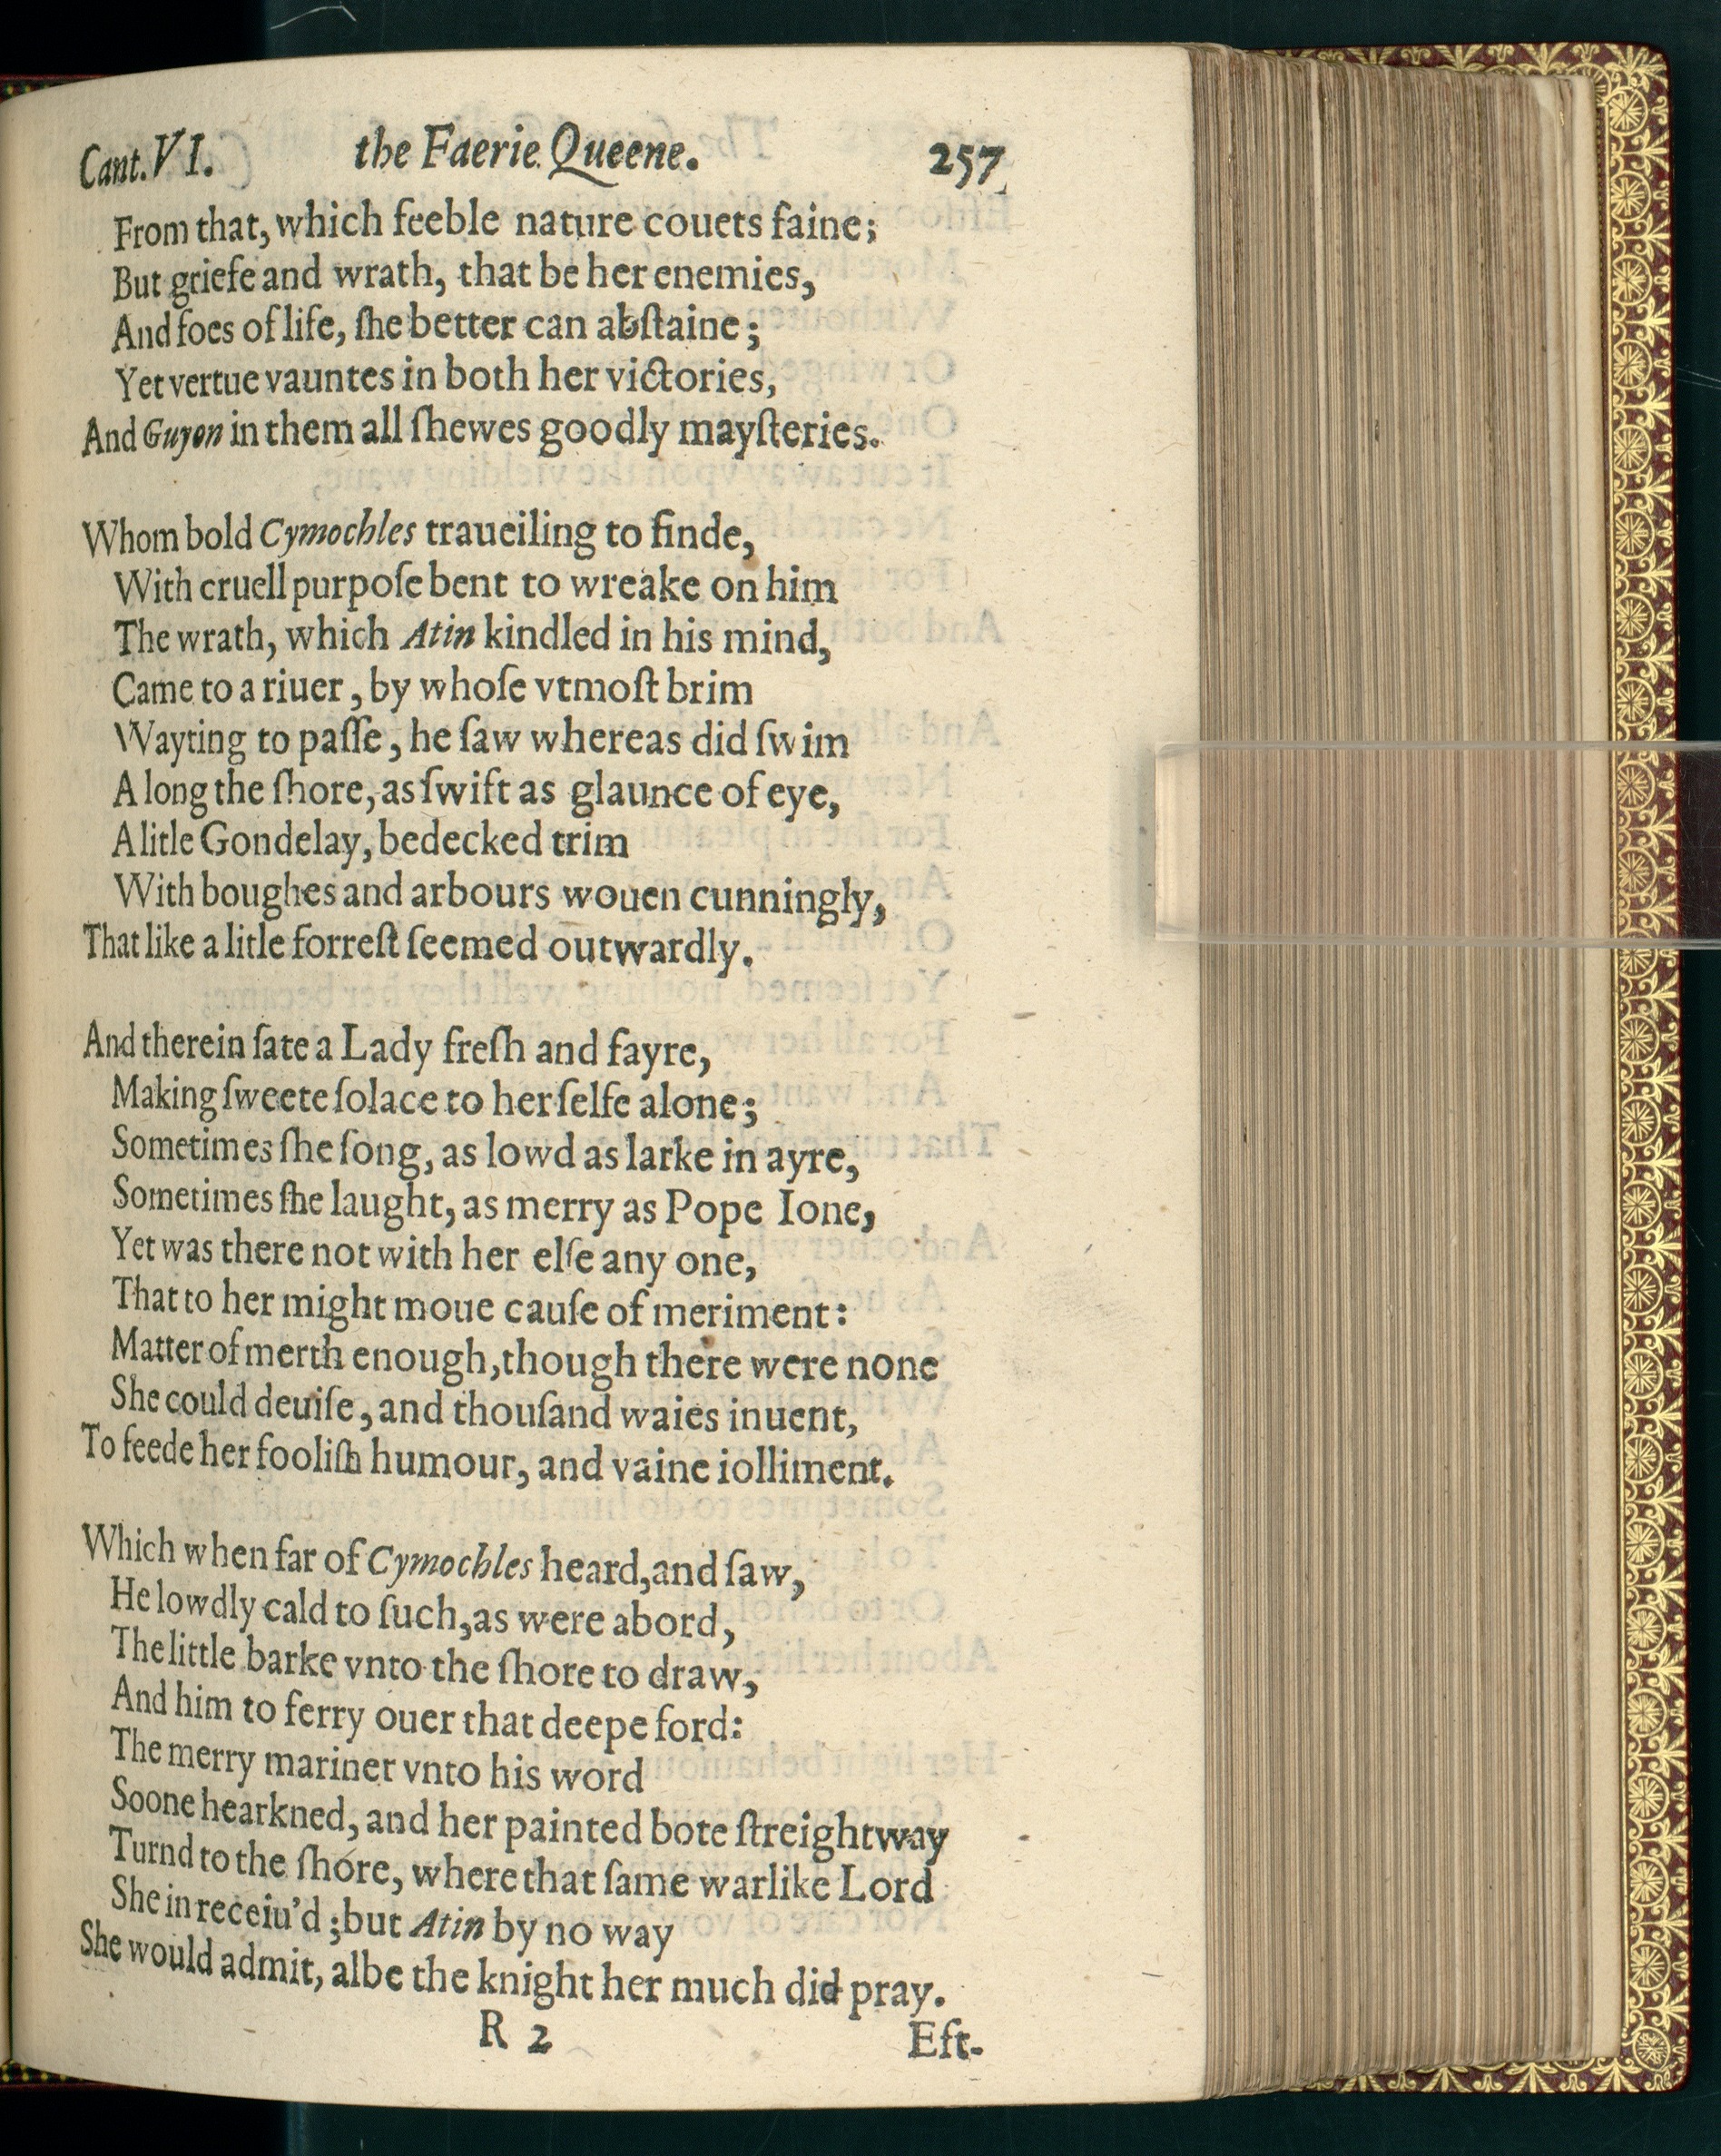 Cant. VI. the Faerie Queene. 257
From that, which feeble nature couets faine;
But griefe and wrath, that be her enemies,
And foes of life, ſhe better can abſtaine;
Yet vertue vauntes in both her victories,
And Guyon in them all ſhewes goodly mayſteries.
Whom bold Cymochles traueiling to finde,
With cruell purpoſe bent to wreake on him
The wrath, which Atin kindled in his mind,
Came to a riuer, by whoſe vtmoſt brim
Wayting to paſſe, he ſaw whereas did ſwim
A long the ſhore, as ſwift as glaunce of eye,
A litle Gondelay, bedecked trim
With boughes and arbours wouen cunningly,
That like a litle forreſt ſeemed outwardly.
And therein ſate a Lady freſh and fayre,
Making ſweete ſolace to herſelfe alone;
Sometimes ſhe ſong, as lowd as larke in ayre,
Sometimes ſhe laught, as merry as Pope Ione,
Yet was there not with her elſe any one,
That to her might moue cauſe of meriment:
Matter of merth enough, though there were none
She could deuiſe, and thouſand waies inuent,
To feede her fooliſh humour, and vaine iolliment.
Which when far of Cymochles heard, and ſaw,
He lowdly cald to ſuch, as were abord,
The little barke vnto the ſhore to draw,
And him to ferry ouer that deepe ford:
The merry mariner vnto his word
Soone hearkned, and her painted bote ſtreightway
Turnd to the ſhore, where that ſame warlike Lord
She in receiu'd; but Atin by no way
She would admit, albe the knight her much did pray.
R 2 Eft-